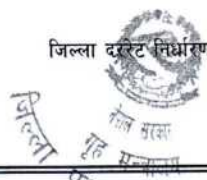 जिल्ला दररेट निर्धारण
नेपाल सरकार
गृह मन्त्रालय
जिल्ला